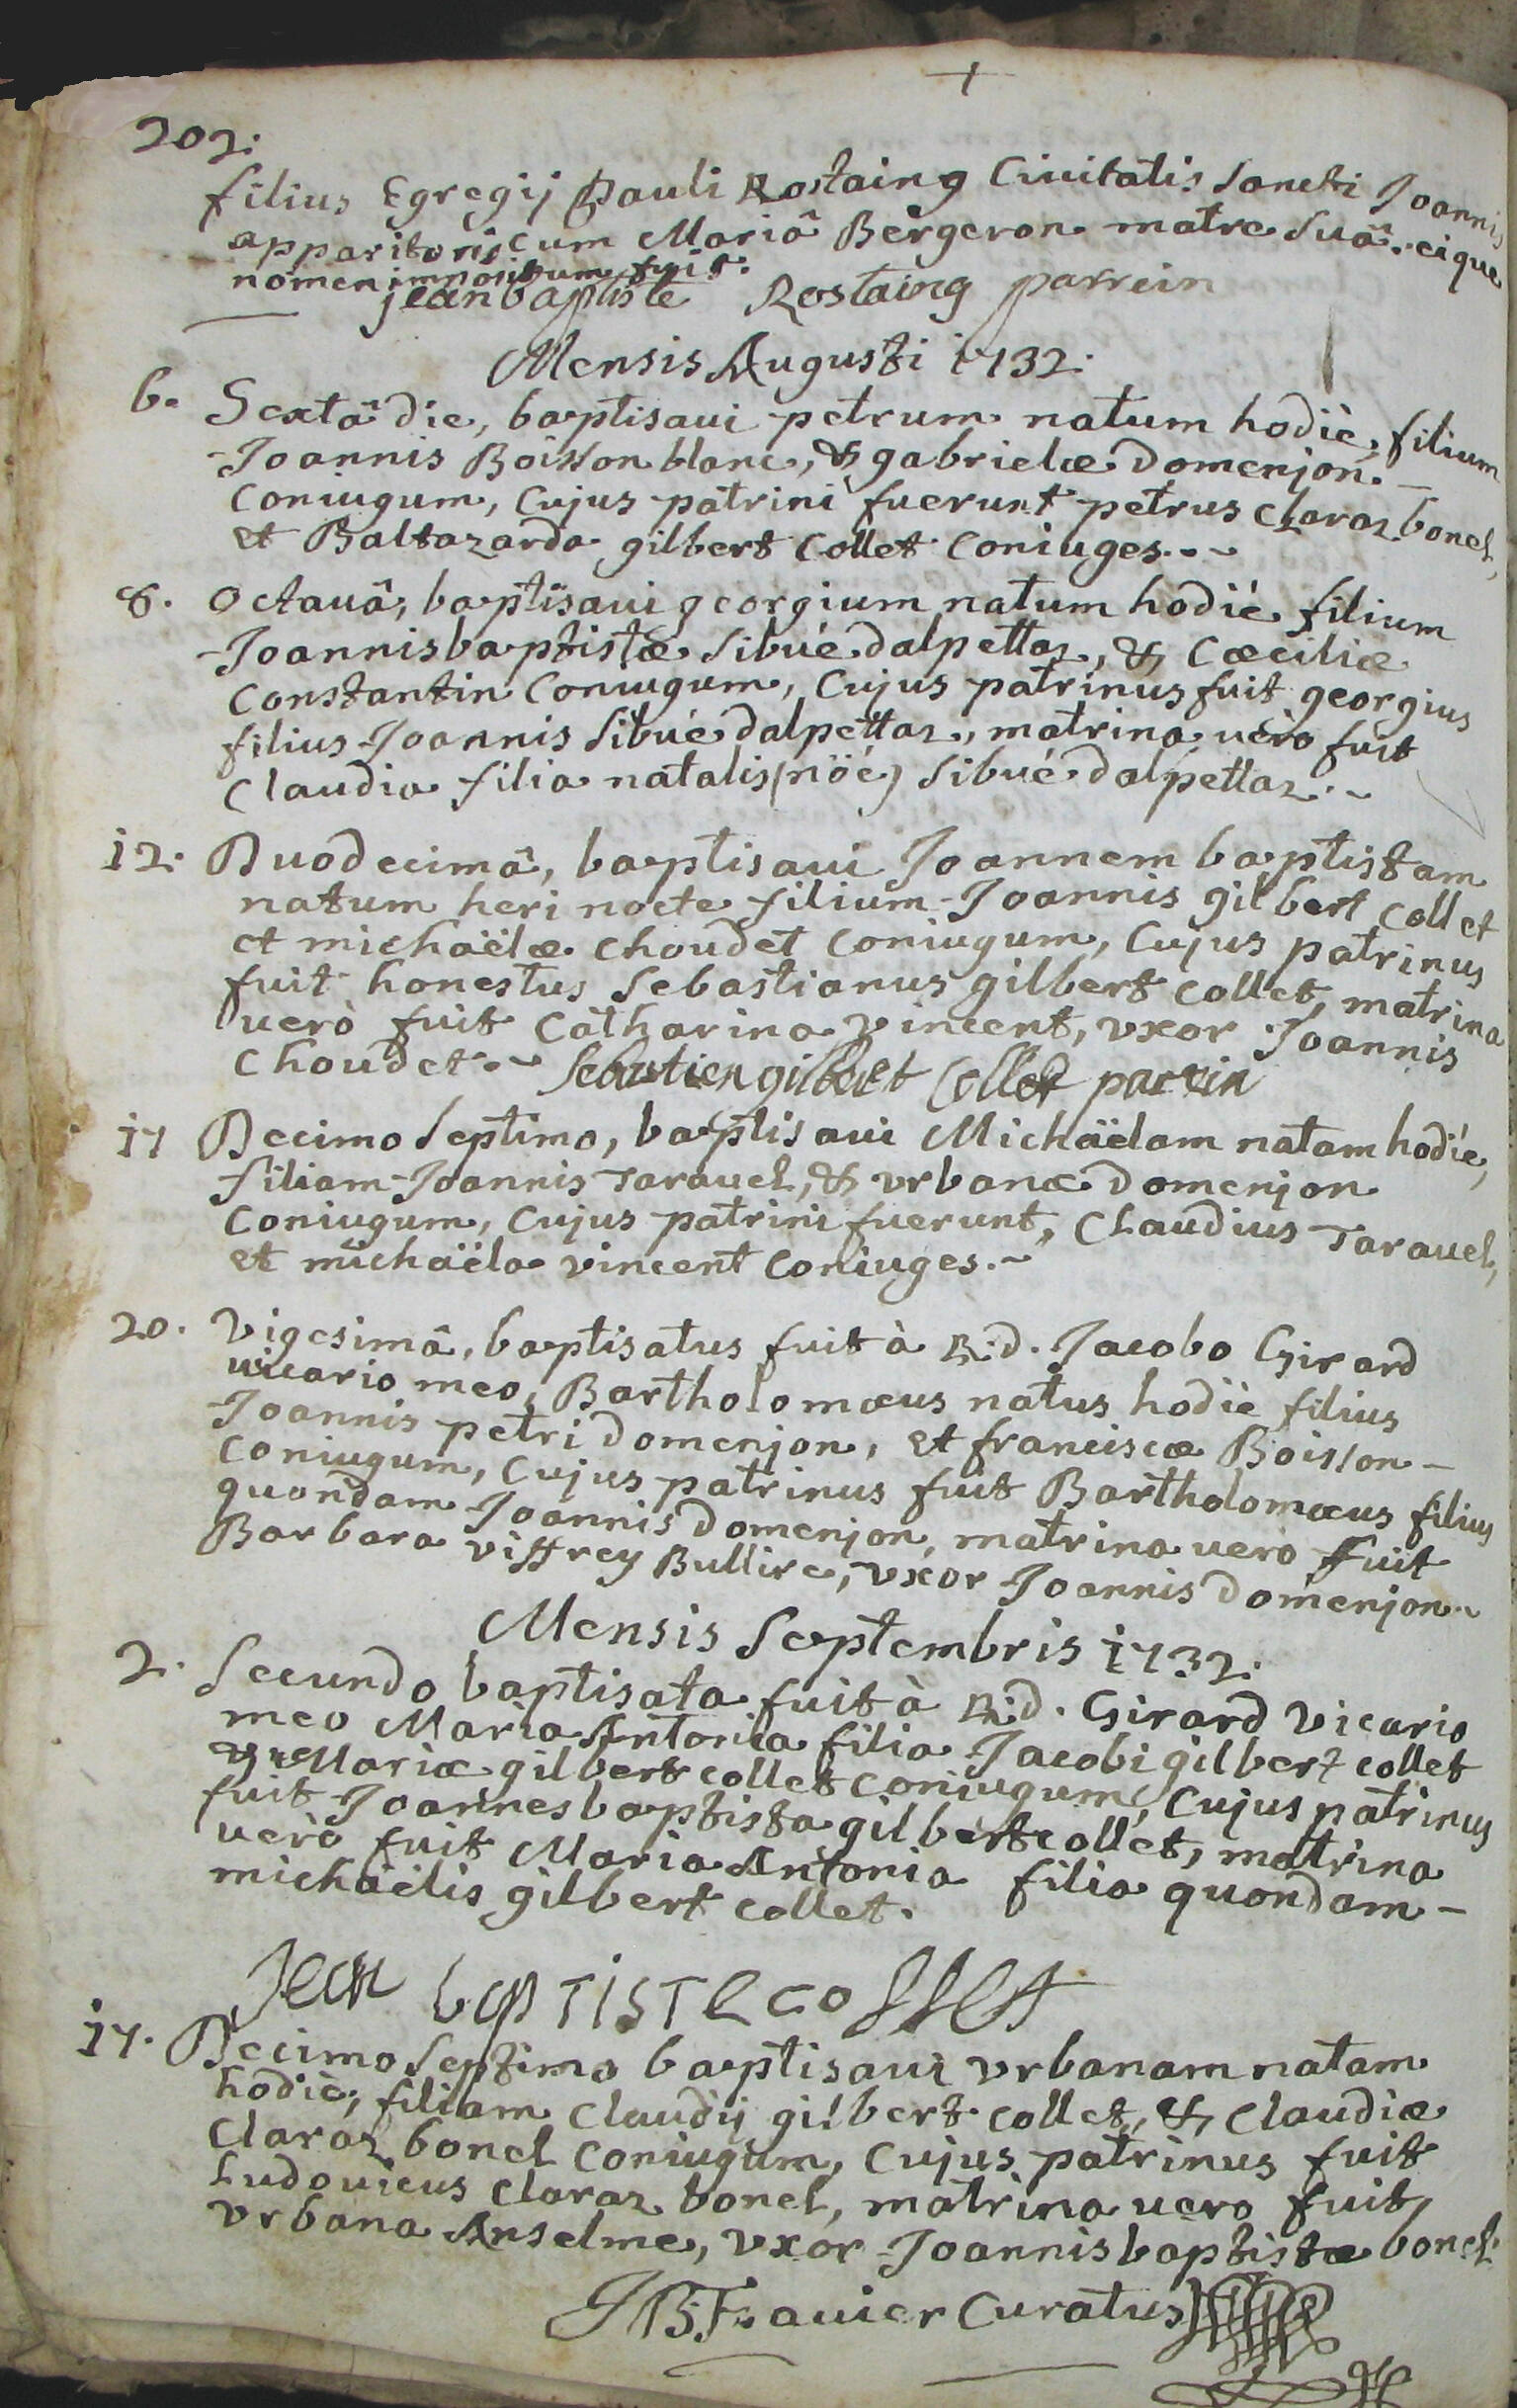 202.
filius Egregij Pauli Rostaing Ciuitatis Sancti Joannis
apparitoris cum Mariâ Bergeron matre suâ. eique
nomen impositum fuit.
jean baptiste Rostaing parrein
Mensis Augusti 1732.
6. Sextâ die, baptisaui petrum natum hodiè, filium
Joannis Boisson blanc, & gabrielæ Domenjon
Coniugum, Cujus patrini fuerunt petrus claraz bonel,
et Baltazarda gilbert Collet Coniuges.
8. Octauâ, baptisaui georgium natum hodiè filium
Joannisbaptistæ Sibué dalpettaz, & Cæciliæ
Constantin Coniugum, Cujus patrinus fuit georgius
filius Joannis Sibué dalpettaz, matrina uerò fuit
Claudia filia natalis (nöé) Sibué dalpettaz.
12. Duodecimâ, baptisaui Joannem baptistam
natum heri nocte filium Joannis gilbert collet
et michaëlæ choudet Coniugum, Cujus patrinus
fuit honestus Sebastianus gilbert collet, matrina
uerò fuit Catharina vincent, vxor Joannis
Choudet. Sebastien gilbert Collet parrin
17 Decimo Septimo, baptisaui Michaëlam natam hodiè,
filiam Joannis Tarauel, & vrbanæ Domenjon
Coniugum, Cujus patrini fuerunt, Claudius Tarauel,
et michaëla vincent Coniuges.
20. Vigesimâ, baptisatus fuit à R.d. Jacobo Girard
uicario meo, Bartholomæus natus hodiè filius
Joannis petri Domenjon, et franciscæ Boisson
Coniugum, Cujus patrinus fuit Bartholomæus filius
quondam Joannis Domenjon, matrina uero fuit
Barbara viffrey Bullire, vxor Joannis Domenjon.
Mensis Septembris 1732.
2. Secundo baptisata fuit à R.d. Girard Vicario
meo Maria Antonia filia Jacobi gilbert collet
& Mariæ gilbert collet Coniugum, Cujus patrinus
fuit Joannesbaptista gilbert collet, matrina
uerò fuit Maria Antonia filia quondam
michaëlis gilbert collet.
Jean baptiste collet
17. Decimo Septimo baptisaui vrbanam natam
hodiè, filiam Claudij gilbert collet, & Claudiæ
Claraz bonel Coniugum, Cujus patrinus fuit
Ludouicus Claraz bonel, matrina uero fuit
Vrbana Anselme, vxor Joannisbaptistæ bonel.
JB. Frauier Curatus